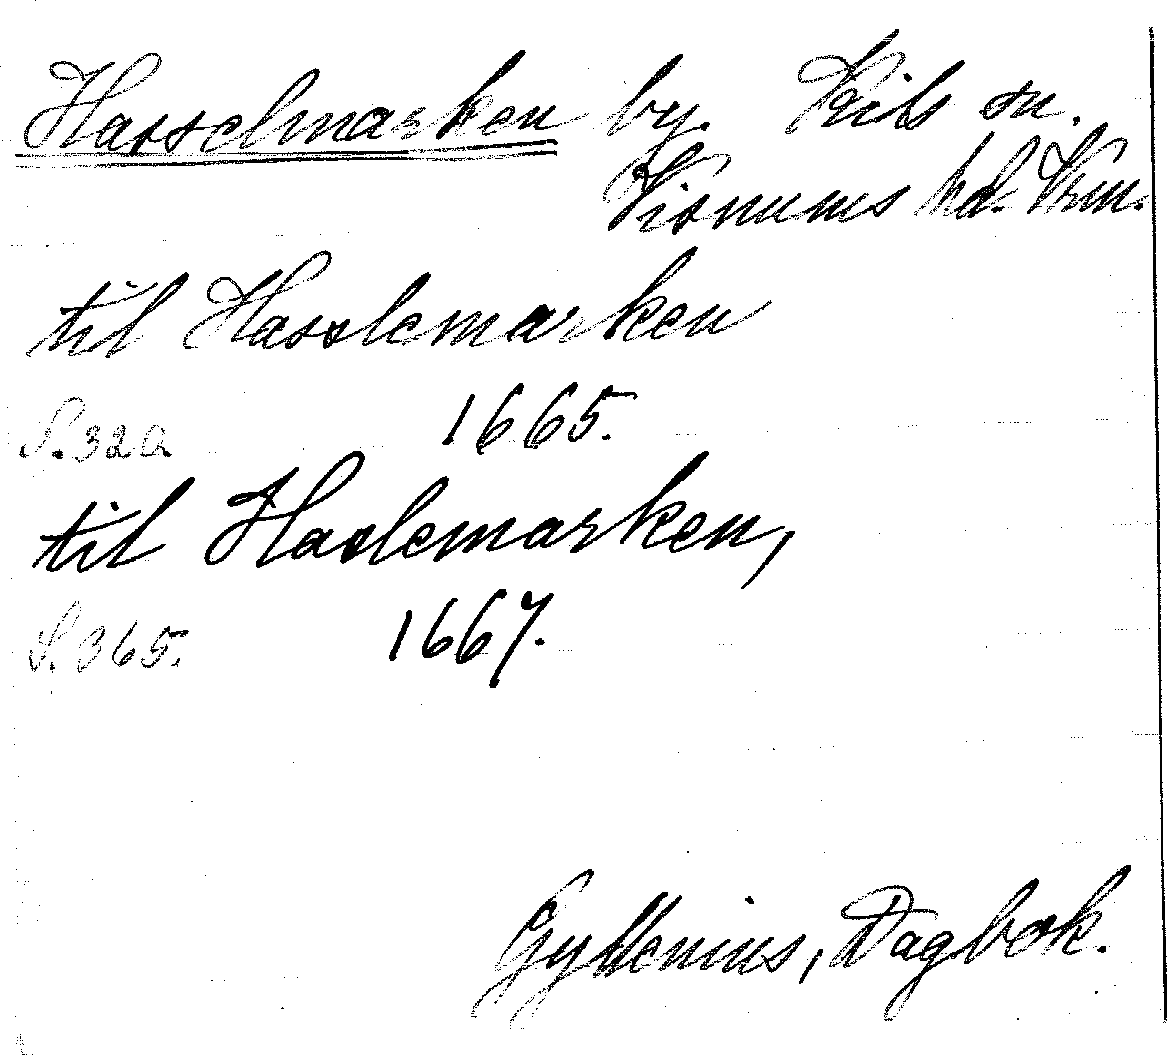 Hasselmarken by. Kils sn.
Visnums hd. Vrm.
til Hasslemarken
S. 320. 1665.
til Haslemarken,
S. 365. 1667.
Gyllenius, Dagbok.